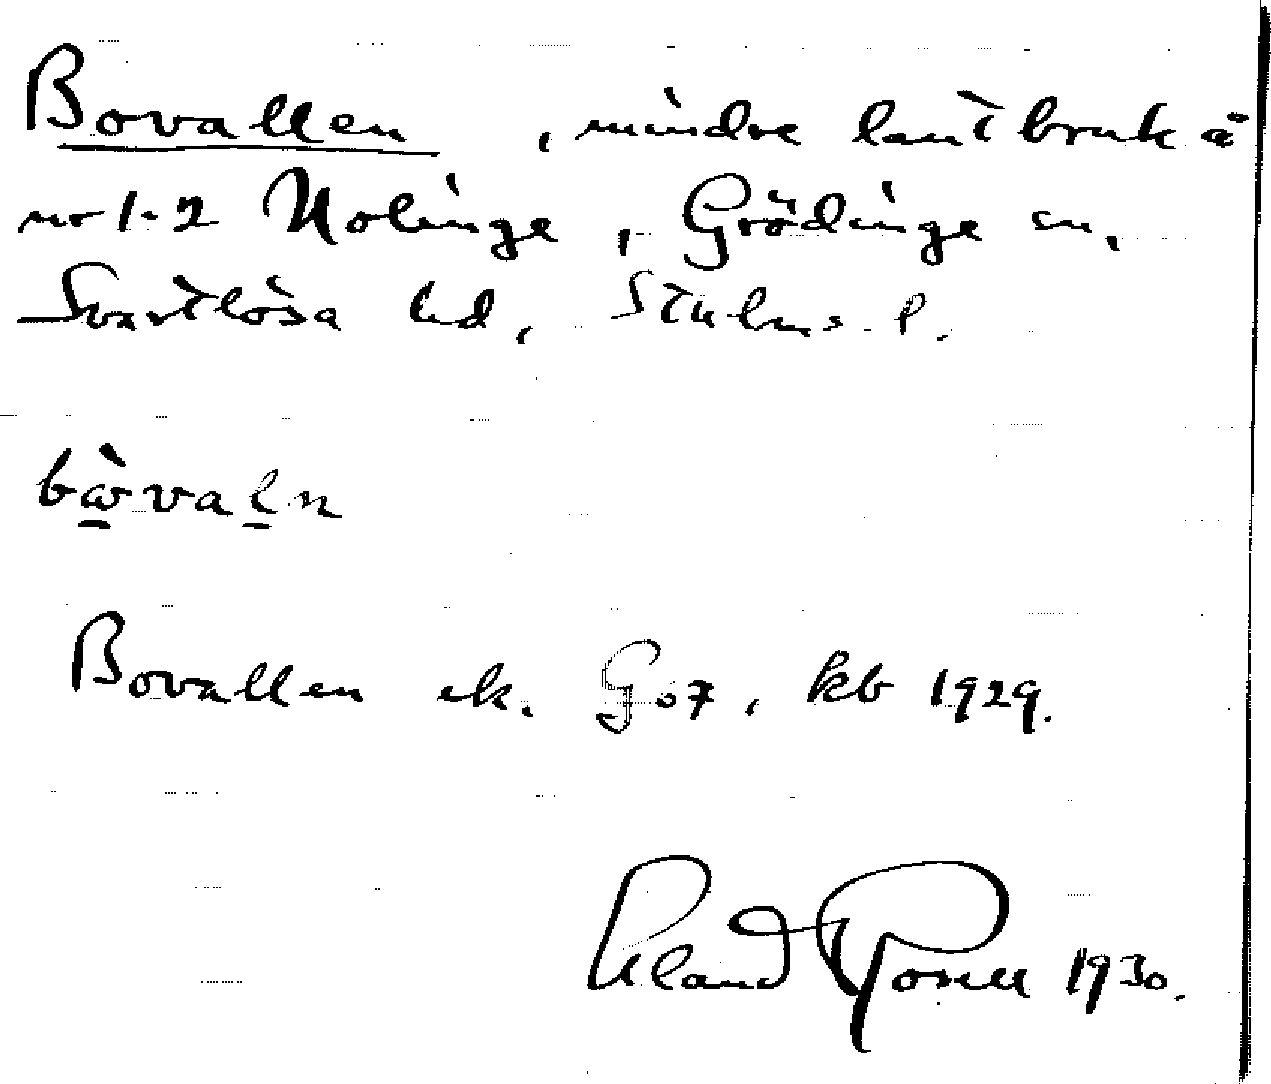 Bovallen, mindre lantbruk å
nr 1-2 Nolinge, Grödinge sn,
Svartlösa hd, Sthlms l.
Bovallen ek. G 67, kb 1929.
1930.